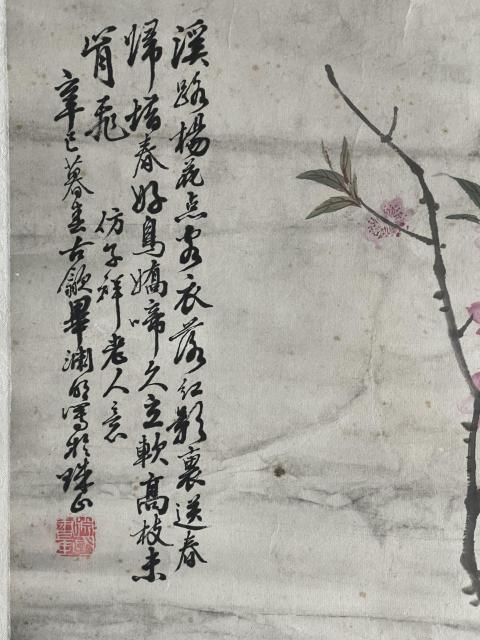 溪路楊花点客衣落紅影裏送春
歸惜春好鳥嬌啼久立軟高枝未
肯飛
仿子祥老人意
辛巳暮春古歙畢淵明寫於珠山